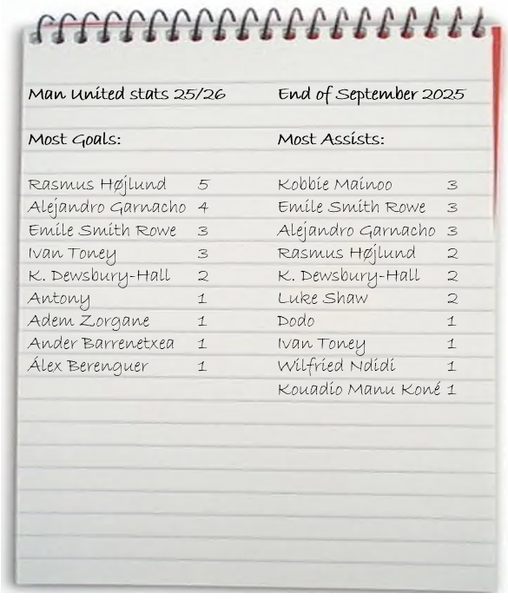 Man United stats 25/26 End of September 2025
Most Goals: Most Assists:
Rasmus Højlund 5 Kobbie Mainoo 3
Alejandro Garnacho 4 Emile Smith Rowe 3
Emile Smith Rowe 3 Alejandro Garnacho 3
Ivan Toney 3 Rasmus Højlund 2
K. Dewsbury-Hall 2 K. Dewsbury-Hall 2
Antony 1 Luke Shaw 2
Adem Zorgane 1 Dodo 1
Ander Barrenetxea 1 Ivan Toney 1
Álex Berenguer 1 Wilfried Ndidi 1
Kouadio Manu Koné 1